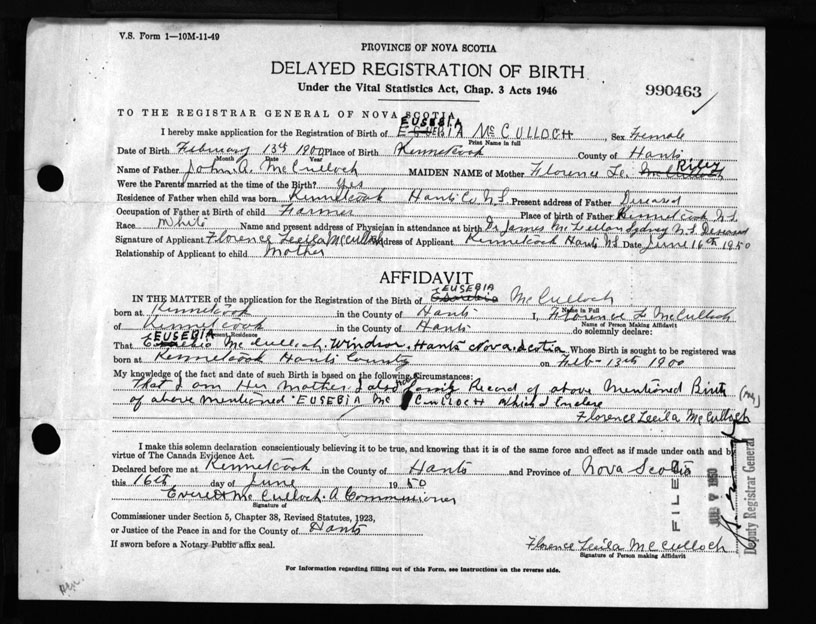 V.S. Form 1—10M-11-49
PROVINCE OF NOVA SCOTIA
DELAYED REGISTRATION OF BIRTH
Under the Vital Statistics Act, Chap. 3 Acts 1946
990463
TO THE REGISTRAR GENERAL OF NOVA SCOTIA
EUSEBIA
I hereby make application for the Registration of Birth of McCULLOCH Sex Female
Print Name in full
Date of Birth February 13th 1900 Place of Birth Kennetcook County of Hants
Month Date Year
Name of Father John A. McCulloch MAIDEN NAME of Mother Florence Le. Riley
Were the Parents married at the time of the Birth? Yes
Residence of Father when child was born Kennetcook Hants Co. N.S. Present address of Father Diseased
Occupation of Father at Birth of child Farmer Place of birth of Father Kennetcook N.S.
Race White Name and present address of Physician in attendance at birth Dr James McLellan Sydney N.S. Deseased
Signature of Applicant Florence Leila McCulloch Address of Applicant Kennetcook Hants N.S. Date June 16th 1950
Relationship of Applicant to child Mother
AFFIDAVIT
EUSEBIA
IN THE MATTER of the application for the Registration of the Birth of McCulloch
Name in Full
born at Kennetcook in the County of Hants I, Florence L McCulloch
Name of Person Making Affidavit
of Kennetcook in the County of Hants do solemnly declare:
Residence
EUSEBIA
That McCulloch. Windsor. Hants Nova. Scotia Whose Birth is sought to be registered was
born at Kennetcook Hants County on Feb- 13th 1900
My knowledge of the fact and date of such Birth is based on the following circumstances:
That I am Her Mother. I also Family Record of above Mentioned Birth
of above mentioned EUSEBIA Mc CULLOCH which I Enclose
Florence Leila McCulloch
I make this solemn declaration conscientiously believing it to be true, and knowing that it is of the same force and effect as if made under oath and by
virtue of The Canada Evidence Act.
Declared before me at Kennetcook in the County of Hants and Province of Nova Scotia
this 16th day of June 1950
Everett McCulloch. A Commissioner
Signature of
Commissioner under Section 5, Chapter 38, Revised Statutes, 1923,
or Justice of the Peace in and for the County of Hants
If sworn before a Notary Public affix seal.
Florence Leila McCulloch
Signature of Person making Affidavit
For information regarding filling out of this Form, see instructions on the reverse side.
FILED
7 1950
Deputy Registrar General